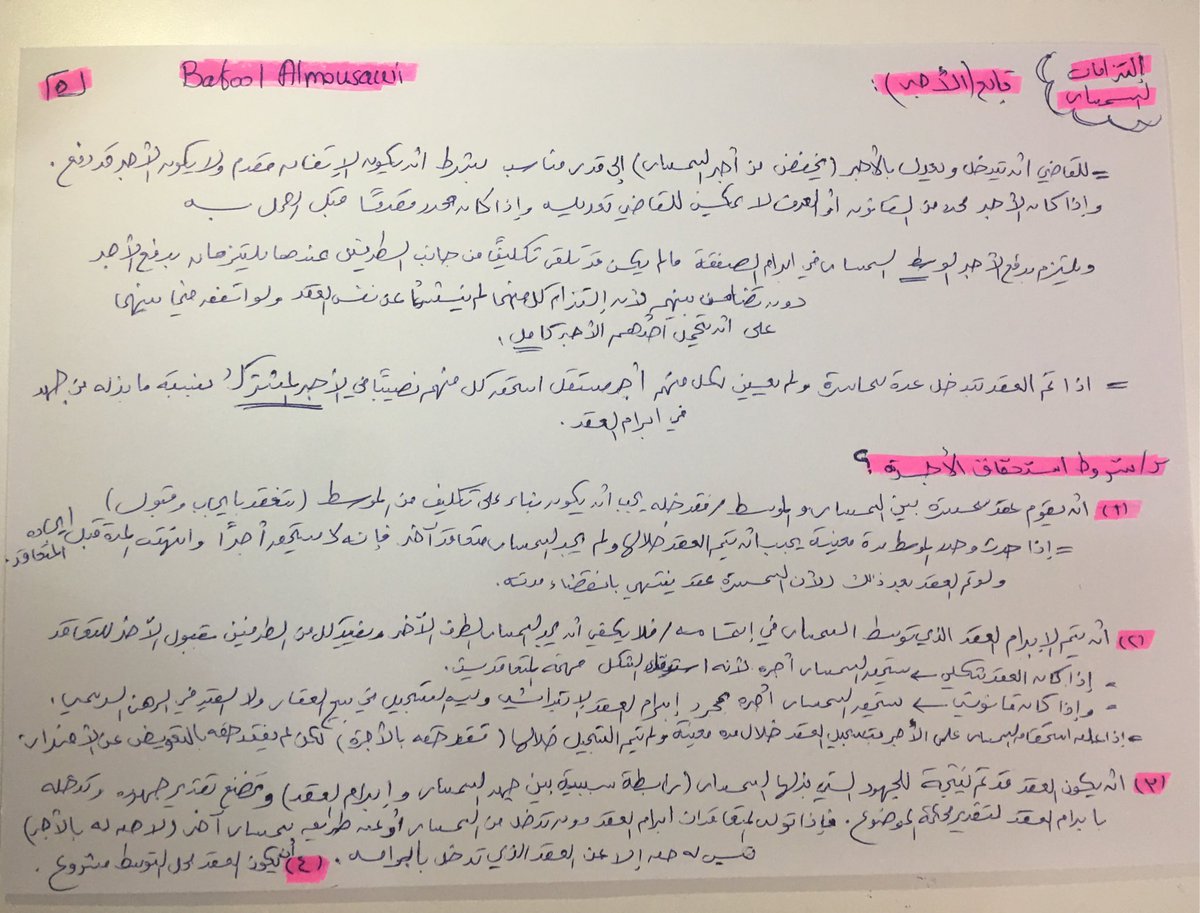 التزامات
السمسار
تابع (الأجر):
Batool Almousawi
٥
= للقاضي أن يتدخل ويعدل بالأجر (يخفض من أجر السمسار) إلى قدر مناسب بشرط أن يكون الإتفاق مقدم ولا يكون الأجر قد دفع.
وإذا كان الأجر محدد من القانون أو العرف لا يمكن للقاضي تعديله وإذا كان محدد مقدمًا قبل العمل به
ويلتزم بدفع الأجر لوسط السمسار في ابرام الصفقة مالم يكن قد تلقى تكليفًا من جانب الطرفين عندها يلتزمان بدفع الأجر
دون تضامن بينهم لأن إلتزام كل منهما لم ينشأ عن نفس العقد ولو اتفق فيما بينهما
على أن يتحمل أحدهم الأجر كامل.
= اذا تم العقد بتدخل عدة سماسرة ولم يعين لكل منهم أجر مستقل استحق كل منهم نصيبًا في الأجر المشترك بنسبة ما بذله من جهد
في ابرام العقد.
س/ شروط استحقاق الأجرة؟
(١) أن يقوم عقد سمسرة بين السمسار والموسط / فتدخله يجب أن يكون بناء على تكليف من الموسط (تنعقد بايجاب وقبول)
= إذا حدد الموسط مدة معينة يجب أن يتم العقد خلالها ولم يجد السمسار متعاقد آخر فإنه لا يستحق أجرًا وانتهت المدة قبل إيجاده
المتعاقد.
ولو تم العقد بعد ذلك لأن السمسرة عقد ينتهي بانقضاء مدته.
(٢) أن يتم الإبرام العقد الذي توسط السمسار في إتمامه / فلا يكفي أن يجد السمسار الطرف الآخر ويفيد كل من الطرفين بقبول الآخر للتعاقد
- إذا كان العقد شكلي ← يستحق السمسار أجره لأنه الشكل مهمة المتعاقدين.
- وإذا كان قانوني ← يستحق السمسار أجره بمجرد إبرام العقد الابتدائي وليس التسجيل في بيع العقار ولا القيد في الرهن الرسمي.
= إذا علق استحقاق السمسار على الأجر بتسجيل العقد خلال مدة معينة ولم يتم التسجيل خلالها (سقط حقه بالأجرة) لكن لم يفقد حقه بالتعويض عن الأضرار.
(٣) أن يكون العقد قد تم نتيجة للجهود التي بذلها السمسار (رابطة سببية بين جهد السمسار وإبرام العقد) ويخضع تقدير جهوده وتدخله
بابرام العقد لتقدير محكمة الموضوع. فإذا تولى المتعاقدان ابرام العقد دون تدخل من السمسار أو عن طريق سمسار آخر (لا حق له بالأجر)
فليس له حق إلا عن العقد الذي تدخل بابرامه.
(٤) أن يكون العقد محل التوسط مشروع.